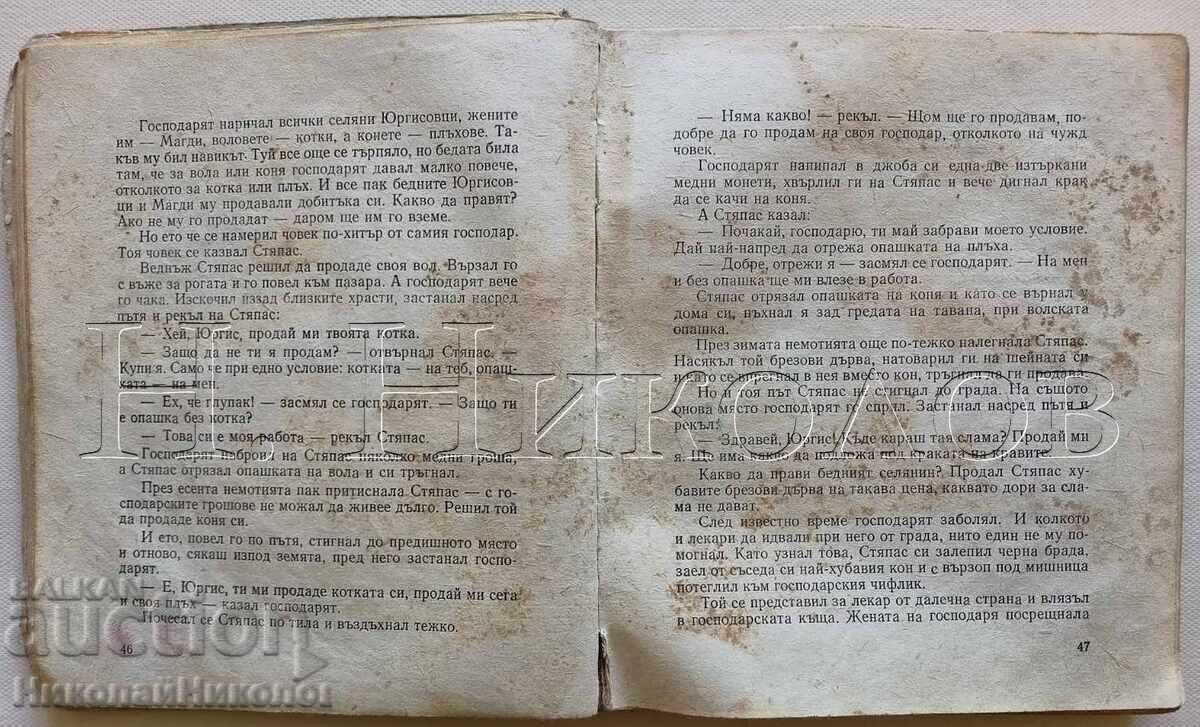 Господарят наричал всички селяни Юргисовци, жените
им — Магди, воловете — котки, а конете — плъхове. Та-
къв му бил навикът. Туй все още се търпяло, но бедата била
там, че за вола или коня господарят давал малко повече,
отколкото за котка или плъх. И все пак бедните Юргисов-
ци и Магди му продавали добитъка си. Какво да правят?
Ако не му го продадат — даром ще им го вземе.
Но ето че се намерил човек по-хитър от самия господар.
Тоя човек се казвал Стяпас.
Веднъж Стяпас решил да продаде своя вол. Вързал го
с въже за рогата и го повел към пазара. А господарят вече
го чака. Изскочил иззад близките храсти, застанал насред
пътя и рекъл на Стяпас:
— Хей, Юргис, продай ми твоята котка.
— Защо да не ти я продам? — отвърнал Стяпас. —
Купи я. Само че при едно условие: котката — на теб, опаш-
ката — на мен.
— Ех, че глупак! — засмял се господарят. — Защо ти
е опашка без котка?
— Това си е моя работа — рекъл Стяпас.
Господарят наброил на Стяпас няколко медни гроша,
а Стяпас отрязал опашката на вола и си тръгнал.
През есента немотията пак притиснала Стяпас — с го-
сподарските грошове не можал да живее дълго. Решил той
да продаде коня си.
И ето, повел го по пътя, стигнал до предишното място
и отново, сякаш изпод земята, пред него застанал госпо-
дарят.
— Е, Юргис, ти ми продаде котката си, продай ми сега
и своя плъх — казал господарят.
Почесал се Стяпас по тила и въздъхнал тежко.
46
— Няма какво! — рекъл. — Щом ще го продавам, по-
добре да го продам на своя господар, отколкото на чужд
човек.
Господарят напипал в джоба си една-две изтъркани
медни монети, хвърлил ги на Стяпас и вече дигнал крак
да се качи на коня.
— А Стяпас казал:
— Почакай, господарю, ти май забрави моето условие.
Дай най-напред да отрежа опашката на плъха.
— Добре, отрежи я — засмял се господарят. — На мен
и без опашка ще ми влезе в работа.
Стяпас отрязал опашката на коня и като се върнал у
дома си, пъхнал я зад гредата на тавана, при волската
опашка.
През зимата немотията още по-тежко налегнала Стяпас.
Насякъл той брезови дърва, натоварил ги на шейната си
и като се впрегнал в нея вместо кон, тръгнал да ги продава.
Но и тоя път Стяпас не стигнал до града. На същото
онова място господарят го спрял. Застанал насред пътя и
рекъл:
— Здравей, Юргис! Къде караш тая слама? Продай ми
я. Ще има какво да подложа под краката на кравите.
Какво да прави бедният селянин? Продал Стяпас ху-
бавите брезови дърва на такава цена, каквато дори за сла-
ма не дават.
След известно време господарят заболял. И колкото
и лекари да идвали при него от града, нито един не му по-
могнал. Като узнал това, Стяпас си залепил черна брада,
заел от съседа си най-хубавия кон и с вързоп под мишница
потеглил към господарския чифлик.
Той се представил за лекар от далечна страна и влязъл
в господарската къща. Жената на господаря посрещнала
47
Н. Николов
BALKAN
auction
НиколайНиколов